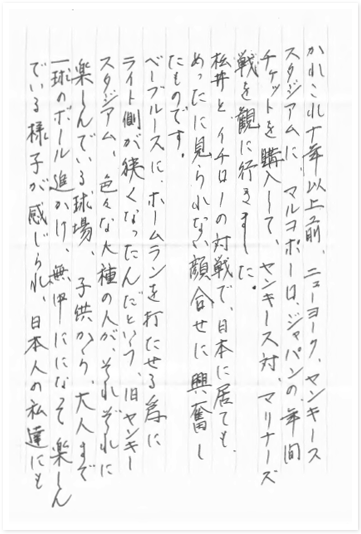 かれこれ十年以上前、ニューヨーク、ヤンキース
スタジアムに、マルコポーロ、ジャパンの年間
チケットを購入して、ヤンキース対、マリナーズ
戦を観に行きました。
松井とイチローの対戦で、日本に居ても、
めったに見られない顔合せに興奮し
たものです。
ベーブルースに、ホームランを打たせる為に
ライト側が狭くなったんだという、旧ヤンキー
スタジアム、色々な人種の人が、それぞれに
楽しんでいる球場、子供から、大人まで
一球のボール追かけ、無中にになって楽しん
でいる様子が感じられ、日本人の私達にも